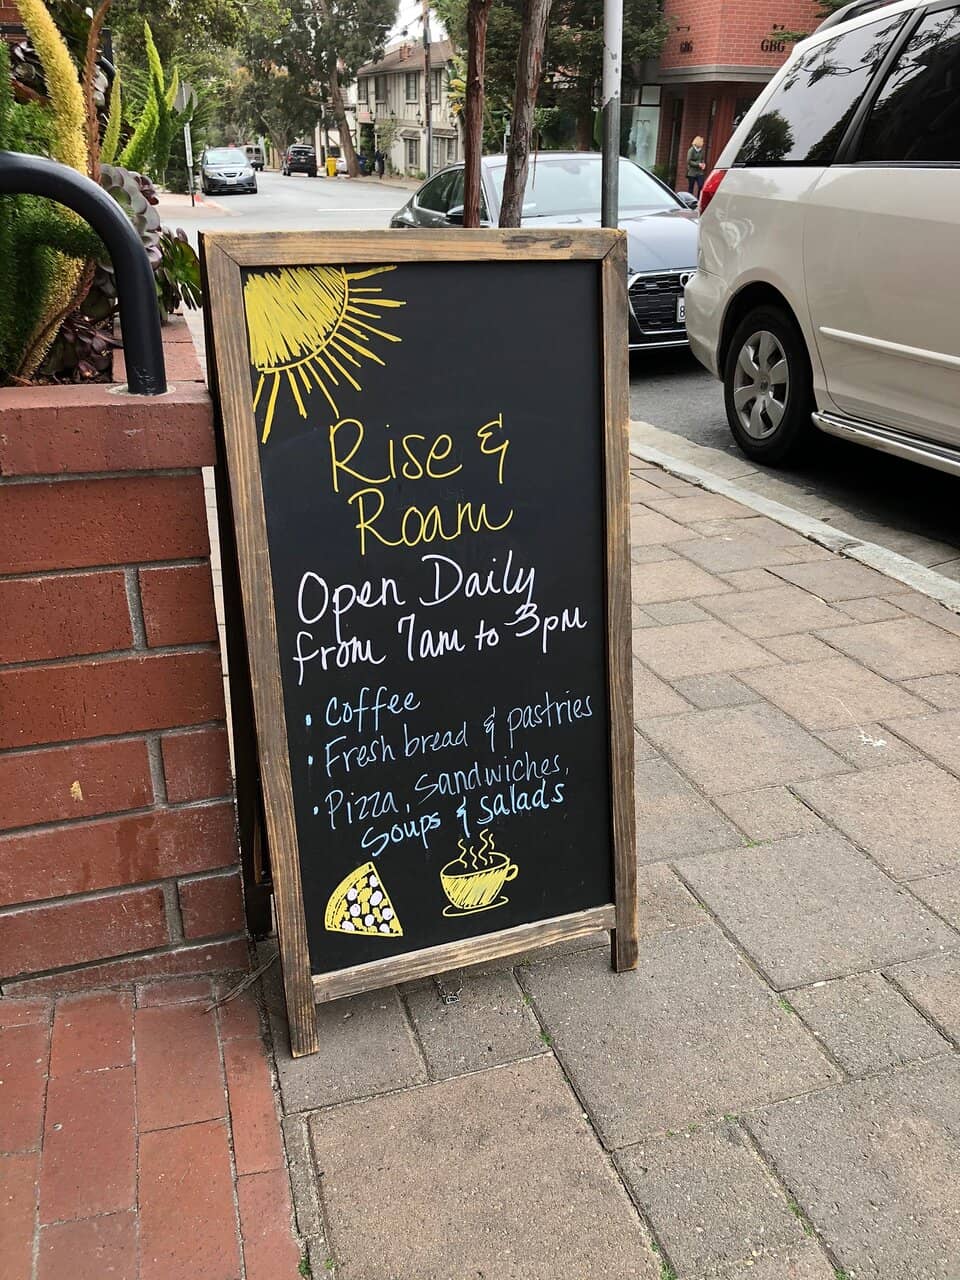 GBG
GBG
Rise &
Roam
Open Daily
from 7am to 3pm
• Coffee
• Fresh bread & pastries
• Pizza, Sandwiches,
Soups & Salads